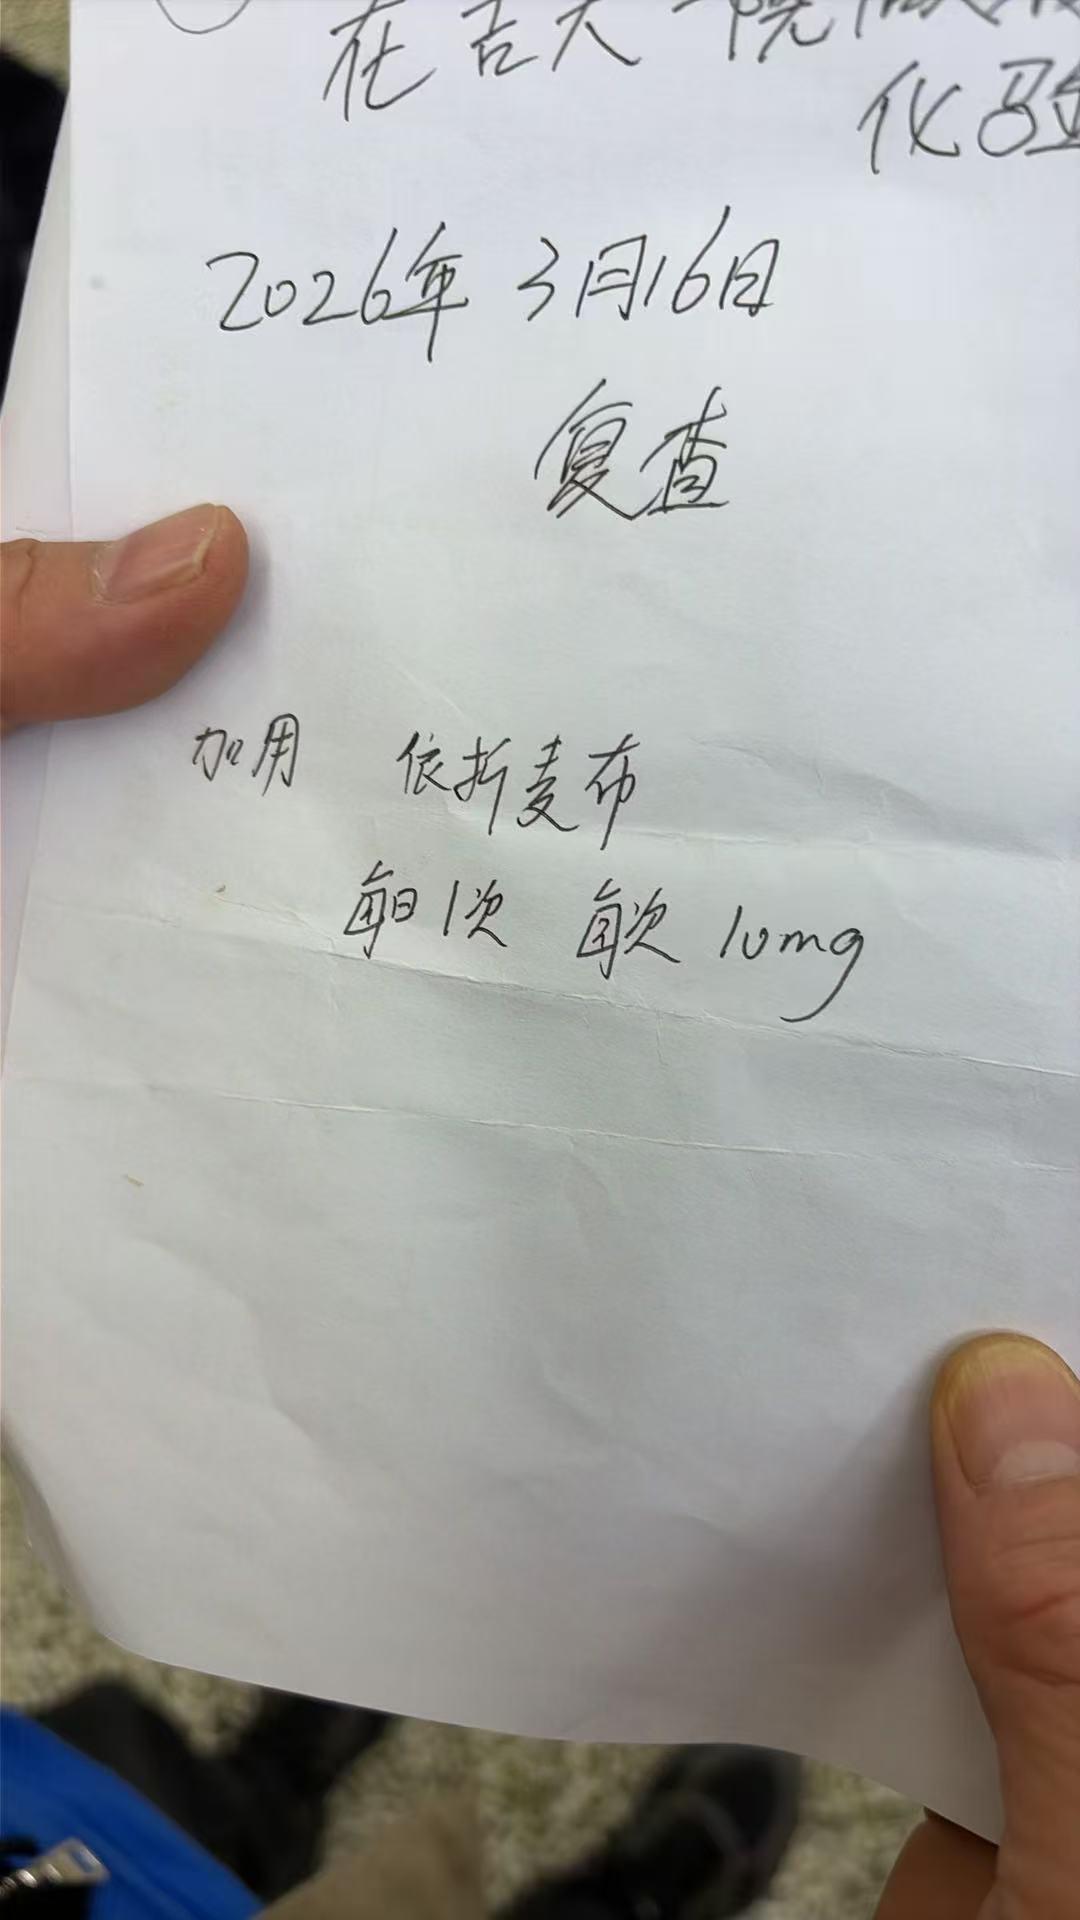 在吉大一院
化验
2026年3月16日
复查
加用 依折麦布
每日1次 每次10mg